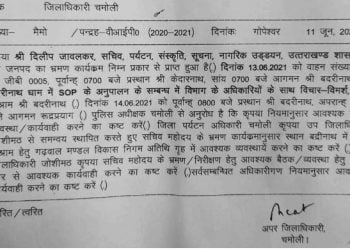 जिलाधिकारी चमोली
मैमो /पन्द्रह-वीआईपी0 (2020-2021) दिनांक गोपेश्वर 11 जून,
श्री दिलीप जावलकर, सचिव, पर्यटन, संस्कृति, सूचना, नागरिक उड्डयन, उत्तराखण्ड शास
जनपद का भ्रमण कार्यक्रम निम्न प्रकार से प्राप्त हुआ है() दिनांक 13.06.2021 को वाहन संख्य
जीबी 0005, पूर्वान्ह 0700 बजे प्रस्थान श्री केदारनाथ, सांय 0700 बजे आगमन श्री बद
बदरीनाथ धाम में SOP के अनुपालन के सम्बन्ध में विभाग के अधिकारियों के साथ विचार-विमर्श,
श्राम श्री बदरीनाथ () दिनांक 14.06.2021 को पूर्वान्ह 0800 बजे प्रस्थान बदरीनाथ, अपरान्
आगमन रूद्रप्रयाग () पुलिस अधीक्षक चमोली से अनुरोध है कि कृपया नियमानुसार आवश्यक
वस्था/कार्यवाही करने का कष्ट करें() जिला पर्यटन अधिकारी चमोली कृपया उप जिला
शीमठ से समन्वय स्थापित करते हुए सचिव महोदय के भ्रमण कार्यक्रमानुसार स्थान बद्रीनाथ में
श्राम हेतु गढ़वाल मण्डल विकास निगम अतिथि गृह में आवश्यक व्यवस्थायें करने का कष्ट करें()
जिलाधिकारी जोशीमठ कृपया सचिव महोदय के भ्रमण/निरीक्षण हेतु आवश्यक बैठक/व्यवस्था हेतु
र से आवश्यक कार्यवाही करने का कष्ट करें ()सर्वसम्बन्धित अधिकारीगण नियमानुसार आव
र्यवाही करने का कष्ट करें ()
रित / त्वरित
अपर जिलाधिकारी,
चमोली।